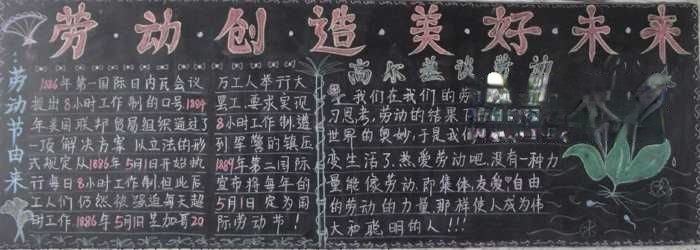 劳动创造美好未来
劳动节由来
1886年第一国际日内瓦会议
提出8小时工作制的口号1884
年美国联邦贸易组织通过了
一项解决方案以立法的形
式规定从1886年5月1日开始执
行每日8小时工作制但此后
工人们仍然被强迫每天超
时工作1886年5月1日芝加哥20
万工人举行大
罢工,要求实现
8小时工作制,遭
到军警的镇压
1889年第二国际
宣布将每年的
5月1日定为国
际劳动节!
高尔基谈劳动
我们在我们的劳
习思考,劳动的结果
世界的奥妙,于是我们
变生活了.热爱劳动吧.没有一种力
量能像劳动.即集体友爱自由
的劳动的力量那样使人成为伟
大和聪明的人!!!